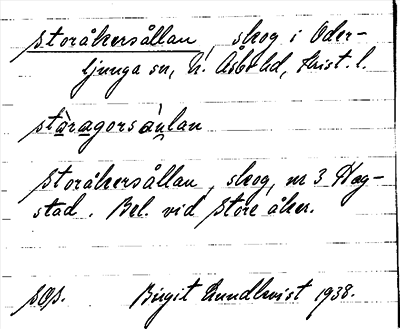 Storåkersållan, skog i Oder-
ljunga sn, N. Åsbo hd, Krist. l.
ståragorsånlan
Storåkersållan, skog, nr 3 Hög-
stad. Bel. vid Store åker.
SOS. Birgit Lundkvist 1938.